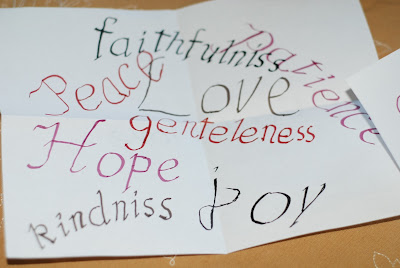 faithfulniss
Patience
Peace
Love
genteleness
Hope
Joy
kindniss